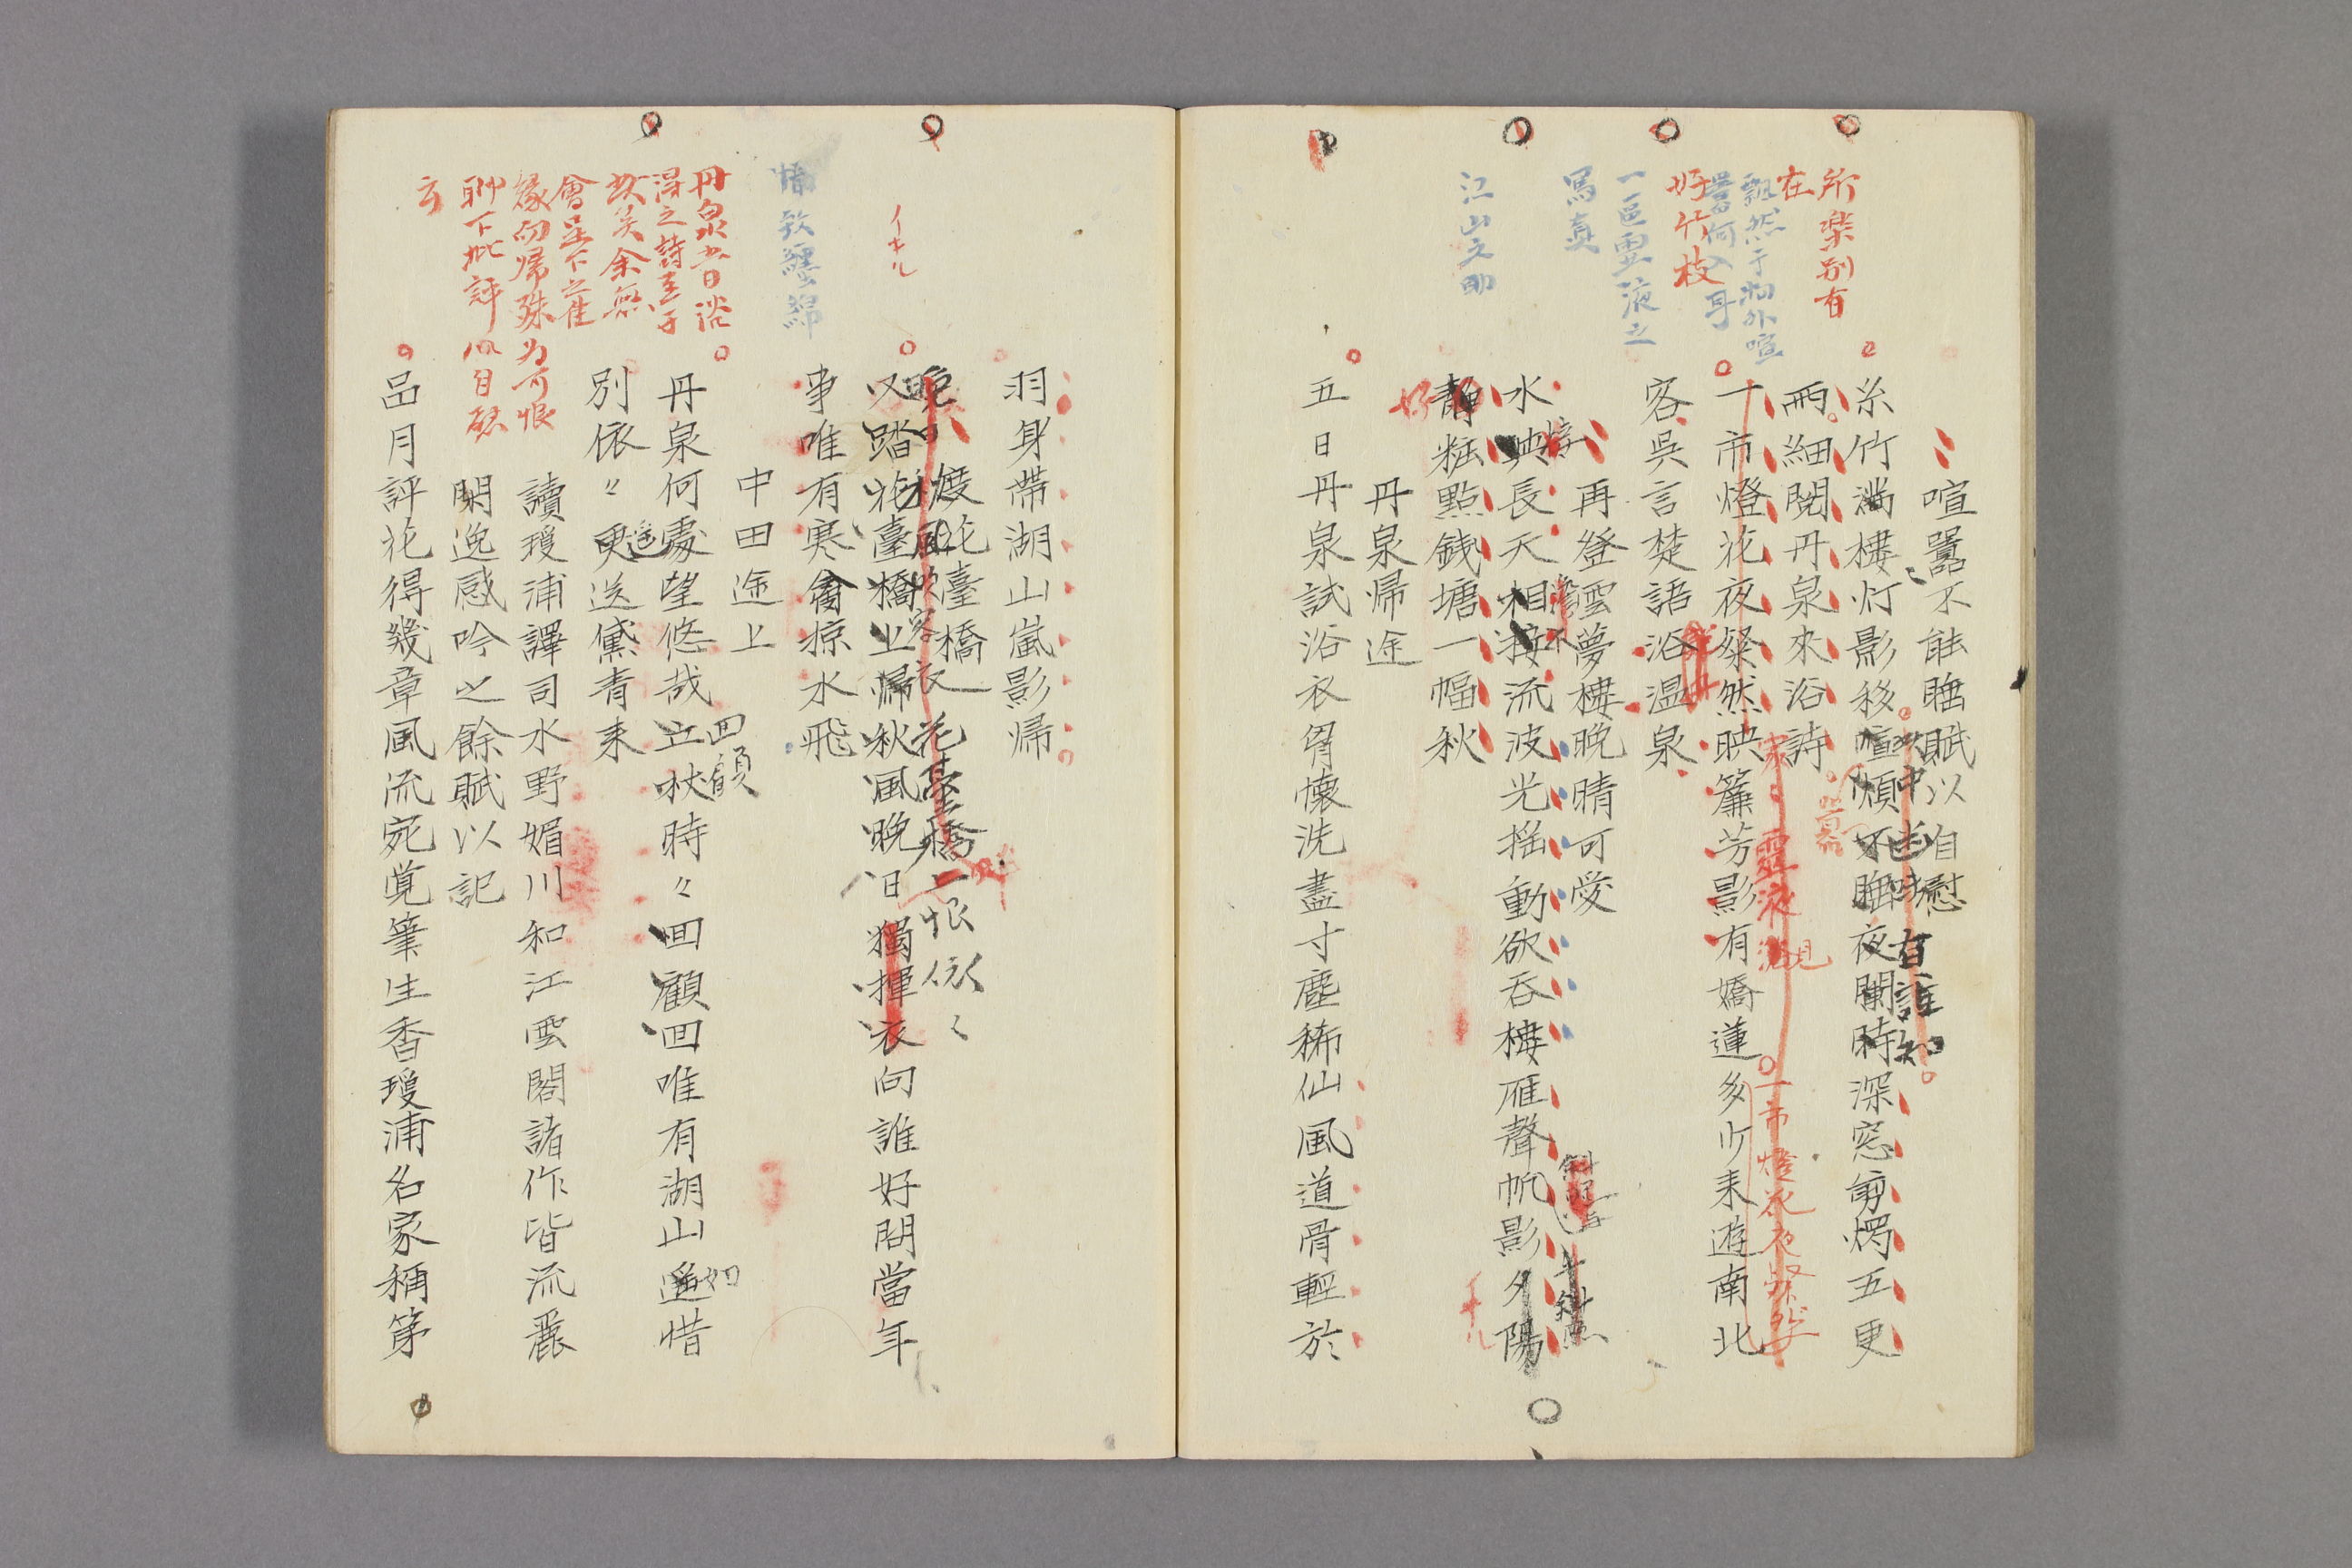 所楽別有
在
飄然于物外喧
囂何入耳
好竹枝
一區靈液之
寫真
江山文助
喧囂不能睡賦以自慰
糸竹満樓灯影移喧煩不睡夜闌時深窓剪燭五更
雨細閲丹泉來浴詩
中
有誰知
一市燈花夜粲然映簾芳影有嬌蓮多少来遊南北
家
靈液
見
一市燈花夜粲然
客呉言楚語浴温泉
再登雲夢樓晩晴可愛
水映長天相接流波光揺動欲呑樓雁聲帆影夕陽
不
斜
静粧點銭塘一幅秋
好
丹泉帰途
五日丹泉試浴衣胷懐洗盡寸塵稀仙風道骨輕於
羽身帯湖山嵐影帰
イキル
惜敘纏綿
渡花臺橋
晩日
花臺橋上恨依々
又踏花臺橋上帰秋風晩日獨揮衣向誰好問當年
事唯有寒禽掠水飛
中田途上
丹泉何處望悠哉立秋時々回顧回唯有湖山遥惜
回顧
如
別依々更送黛青来
遥
丹泉五日浴
得之詩至于
此矣余無
會呈下之隹
縁而帰殊為可恨
聊下批評以自慰
云
讀瓊浦譯司水野媚川和江雲閣諸作皆流麗
閑逸感吟之餘賦以記
品月評花得幾章風流宛覚筆生香瓊浦名家稱第